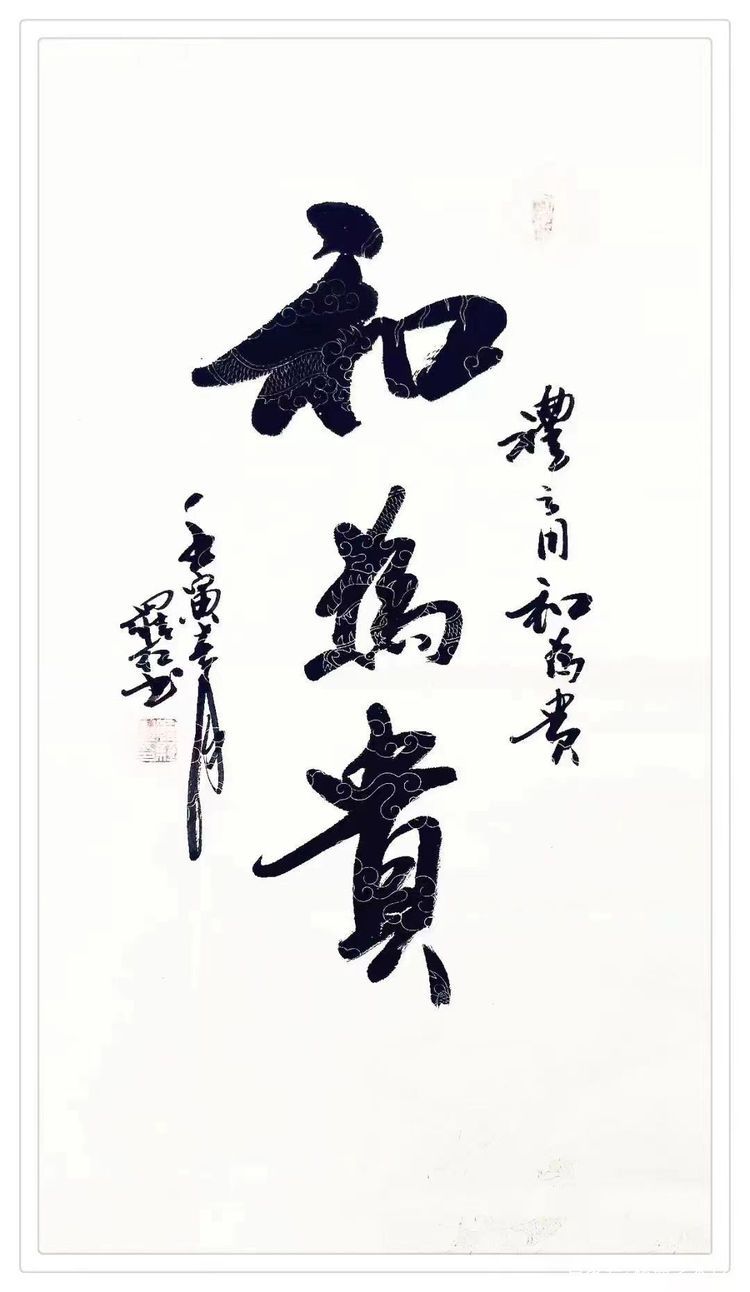 禮之用和為貴
和為貴
壬寅春月
書